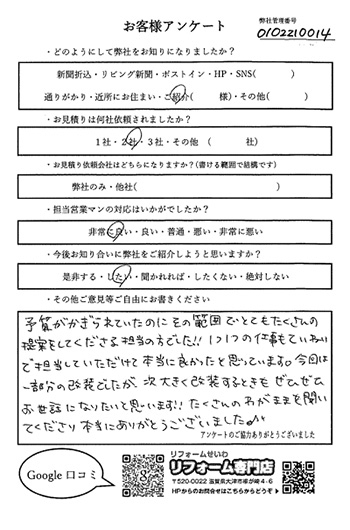 お客様アンケート
弊社管理番号
0102210014
・どのようにして弊社をお知りになりましたか？
新聞折込・リビング新聞・ポストイン・HP・SNS(　　　)
通りがかり・近所にお住まい・ご紹介(　　　様)・その他(　　　)
・お見積りは何社依頼されましたか？
1社・2社・3社・その他　(　　　社)
・お見積り依頼会社はどちらになりますか？(書ける範囲で結構です)
弊社のみ・他社(　　　)
・担当営業マンの対応はいかがでしたか？
非常に良い・良い・普通・悪い・非常に悪い
・今後お知り合いに弊社をご紹介しようと思いますか？
是非する・したい・聞かれれば・したくない・絶対しない
・その他ご意見等ご自由にお書きください
予算がかぎられていたのにその範囲でとてもたくさんの
提案をしてくださる担当の方でした!! 1つ1つの仕事ていねい
で担当していただけて本当に良かったと思っています。今回は
一部分の改装でしたが、次大きく改装するときも ぜひぜひ
お世話になりたいと思います!! たくさんのわがままを聞い
てくださり本当にありがとうございました♪
アンケートのご協力ありがとうございました
Google 口コミ
リフォームせいわ
リフォーム専門店
〒520-0022 滋賀県大津市柳が崎4-6
HPからのお問合せはこちらからどうぞ